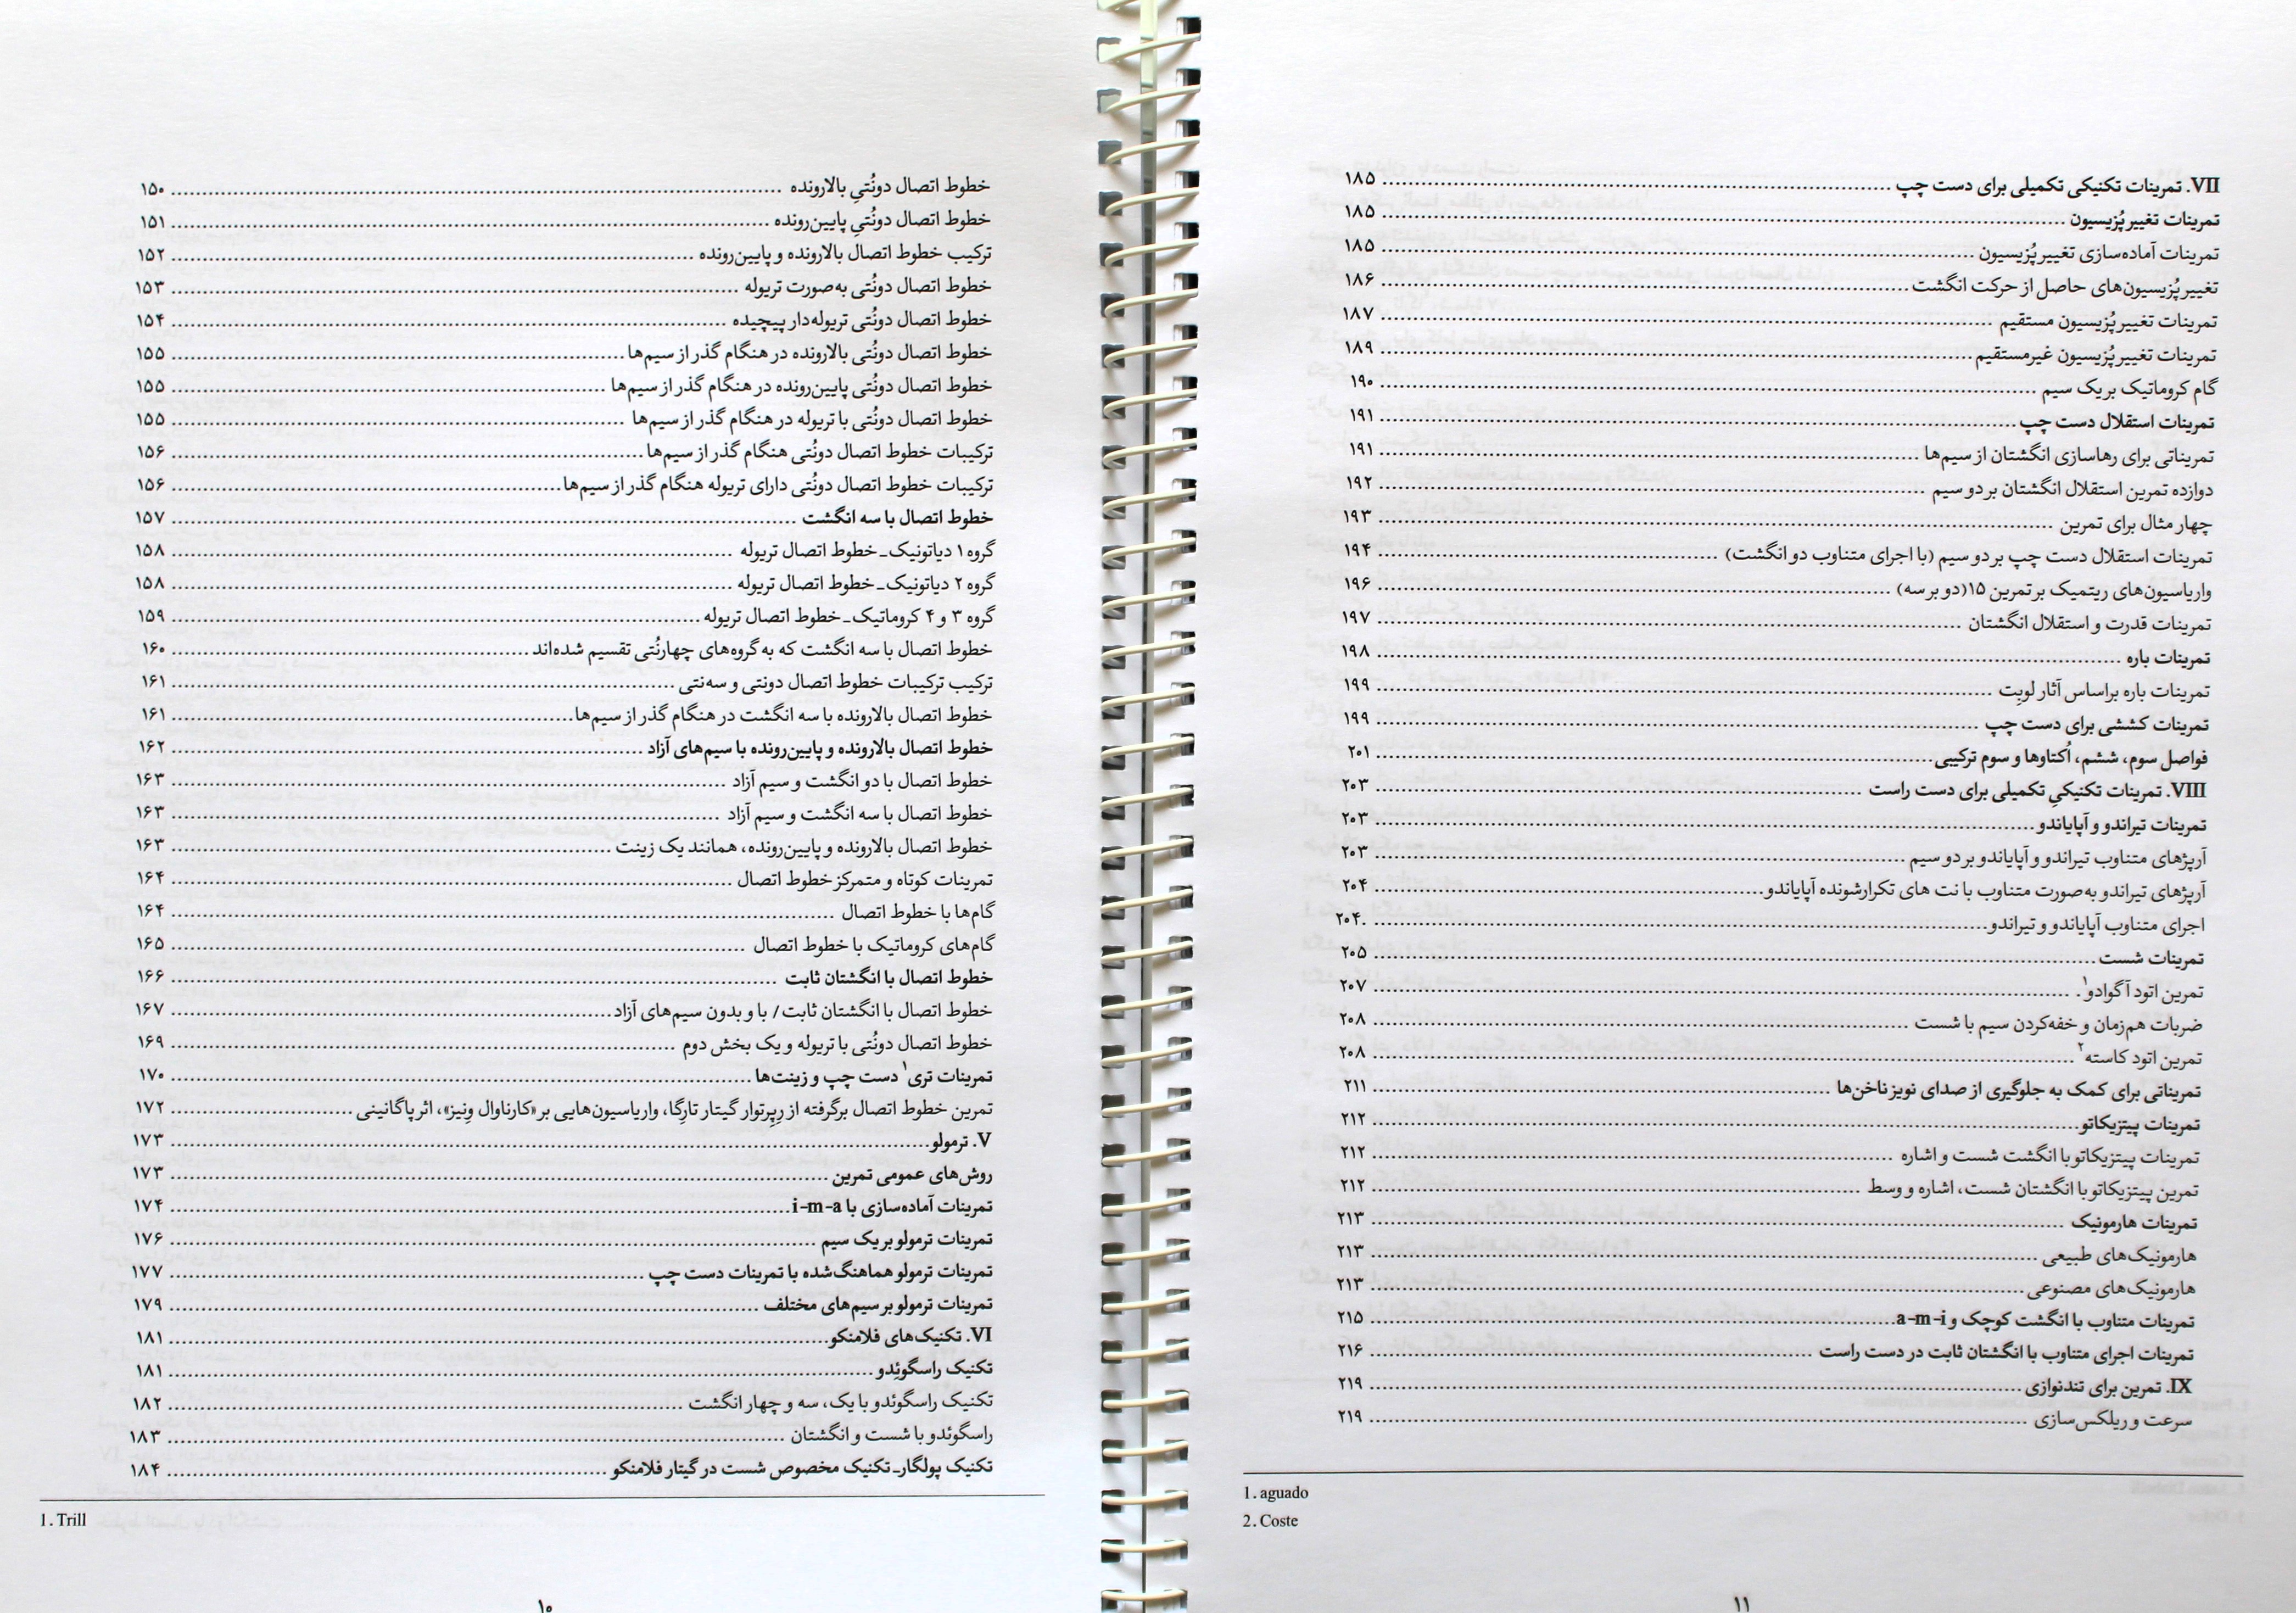 خطوط اتصال دونُتیِ بالارونده ........ ۱۵۰
خطوط اتصال دونُتیِ پایین‌رونده ........ ۱۵۱
ترکیب خطوط اتصال بالارونده و پایین‌رونده ........ ۱۵۲
خطوط اتصال دونُتی به‌صورت تریوله ........ ۱۵۳
خطوط اتصال دونُتی تریوله‌دار پیچیده ........ ۱۵۴
خطوط اتصال دونُتی بالارونده در هنگام گذر از سیم‌ها ........ ۱۵۵
خطوط اتصال دونُتی پایین‌رونده در هنگام گذر از سیم‌ها ........ ۱۵۵
خطوط اتصال دونُتی با تریوله در هنگام گذر از سیم‌ها ........ ۱۵۵
ترکیبات خطوط اتصال دونُتی هنگام گذر از سیم‌ها ........ ۱۵۶
ترکیبات خطوط اتصال دونُتی دارای تریوله هنگام گذر از سیم‌ها ........ ۱۵۶
خطوط اتصال با سه انگشت ........ ۱۵۷
گروه ۱ دیاتونیک ـ خطوط اتصال تریوله ........ ۱۵۸
گروه ۲ دیاتونیک ـ خطوط اتصال تریوله ........ ۱۵۸
گروه ۳ و ۴ کروماتیک ـ خطوط اتصال تریوله ........ ۱۵۹
خطوط اتصال با سه انگشت که به گروه‌های چهارنُتی تقسیم شده‌اند ........ ۱۶۰
ترکیب ترکیبات خطوط اتصال دونتی و سه‌نتی ........ ۱۶۱
خطوط اتصال بالارونده با سه انگشت در هنگام گذر از سیم‌ها ........ ۱۶۱
خطوط اتصال بالارونده و پایین‌رونده با سیم‌های آزاد ........ ۱۶۲
خطوط اتصال با دو انگشت و سیم آزاد ........ ۱۶۳
خطوط اتصال با سه انگشت و سیم آزاد ........ ۱۶۳
خطوط اتصال بالارونده و پایین‌رونده، همانند یک زینت ........ ۱۶۳
تمرینات کوتاه و متمرکز خطوط اتصال ........ ۱۶۴
گام‌ها با خطوط اتصال ........ ۱۶۴
گام‌های کروماتیک با خطوط اتصال ........ ۱۶۵
خطوط اتصال با انگشتان ثابت ........ ۱۶۶
خطوط اتصال با انگشتان ثابت / با و بدون سیم‌های آزاد ........ ۱۶۷
خطوط اتصال دونُتی با تریوله و یک بخش دوم ........ ۱۶۹
تمرینات تری۱ دست چپ و زینت‌ها ........ ۱۷۰
تمرین خطوط اتصال برگرفته از رِپِرتوار گیتار تارِگا، واریاسیون‌هایی بر «کارناوال وِنیز»، اثر پاگانینی ........ ۱۷۲
V. ترمولو ........ ۱۷۳
روش‌های عمومی تمرین ........ ۱۷۳
تمرینات آماده‌سازی با i-m-a ........ ۱۷۴
تمرینات ترمولو بر یک سیم ........ ۱۷۶
تمرینات ترمولو هماهنگ‌شده با تمرینات دست چپ ........ ۱۷۷
تمرینات ترمولو بر سیم‌های مختلف ........ ۱۷۹
VI. تکنیک‌های فلامنکو ........ ۱۸۱
تکنیک راسگوئِدو ........ ۱۸۱
تکنیک راسگوئدو با یک، سه و چهار انگشت ........ ۱۸۲
راسگوئدو با شست و انگشتان ........ ۱۸۳
تکنیک پولگار ـ تکنیک مخصوص شست در گیتار فلامنکو ........ ۱۸۴
1. Trill
۱۰
VII. تمرینات تکنیکی تکمیلی برای دست چپ ........ ۱۸۵
تمرینات تغییر پُزیسیون ........ ۱۸۵
تمرینات آماده‌سازی تغییر پُزیسیون ........ ۱۸۵
تغییر پُزیسیون‌های حاصل از حرکت انگشت ........ ۱۸۶
تمرینات تغییر پُزیسیون مستقیم ........ ۱۸۷
تمرینات تغییر پُزیسیون غیرمستقیم ........ ۱۸۹
گام کروماتیک بر یک سیم ........ ۱۹۰
تمرینات استقلال دست چپ ........ ۱۹۱
تمریناتی برای رهاسازی انگشتان از سیم‌ها ........ ۱۹۱
دوازده تمرین استقلال انگشتان بر دو سیم ........ ۱۹۲
چهار مثال برای تمرین ........ ۱۹۳
تمرینات استقلال دست چپ بر دو سیم (با اجرای متناوب دو انگشت) ........ ۱۹۴
واریاسیون‌های ریتمیک بر تمرین ۱۵ (دو بر سه) ........ ۱۹۶
تمرینات قدرت و استقلال انگشتان ........ ۱۹۷
تمرینات باره ........ ۱۹۸
تمرینات باره براساس آثار لوبِت ........ ۱۹۹
تمرینات کششی برای دست چپ ........ ۱۹۹
فواصل سوم، ششم، اُکتاوها و سوم ترکیبی ........ ۲۰۱
VIII. تمرینات تکنیکیِ تکمیلی برای دست راست ........ ۲۰۳
تمرینات تیراندو و آپایاندو ........ ۲۰۳
آرپژهای متناوب تیراندو و آپایاندو بر دو سیم ........ ۲۰۳
آرپژهای تیراندو به‌صورت متناوب با نت های تکرارشونده آپایاندو ........ ۲۰۴
اجرای متناوب آپایاندو و تیراندو ........ ۲۰۴
تمرینات شست ........ ۲۰۵
تمرین اتود آگوادو۱ ........ ۲۰۷
ضربات هم‌زمان و خفه‌کردن سیم با شست ........ ۲۰۸
تمرین اتود کاسته۲ ........ ۲۰۸
تمریناتی برای کمک به جلوگیری از صدای نویز ناخن‌ها ........ ۲۱۱
تمرینات پیتزیکاتو ........ ۲۱۲
تمرینات پیتزیکاتو با انگشت شست و اشاره ........ ۲۱۲
تمرین پیتزیکاتو با انگشتان شست، اشاره و وسط ........ ۲۱۲
تمرینات هارمونیک ........ ۲۱۳
هارمونیک‌های طبیعی ........ ۲۱۳
هارمونیک‌های مصنوعی ........ ۲۱۳
تمرینات متناوب با انگشت کوچک و a-m-i ........ ۲۱۵
تمرینات اجرای متناوب با انگشتان ثابت در دست راست ........ ۲۱۶
IX. تمرین برای تندنوازی ........ ۲۱۹
سرعت و ریلکس‌سازی ........ ۲۱۹
1. aguado
2. Coste
۱۱